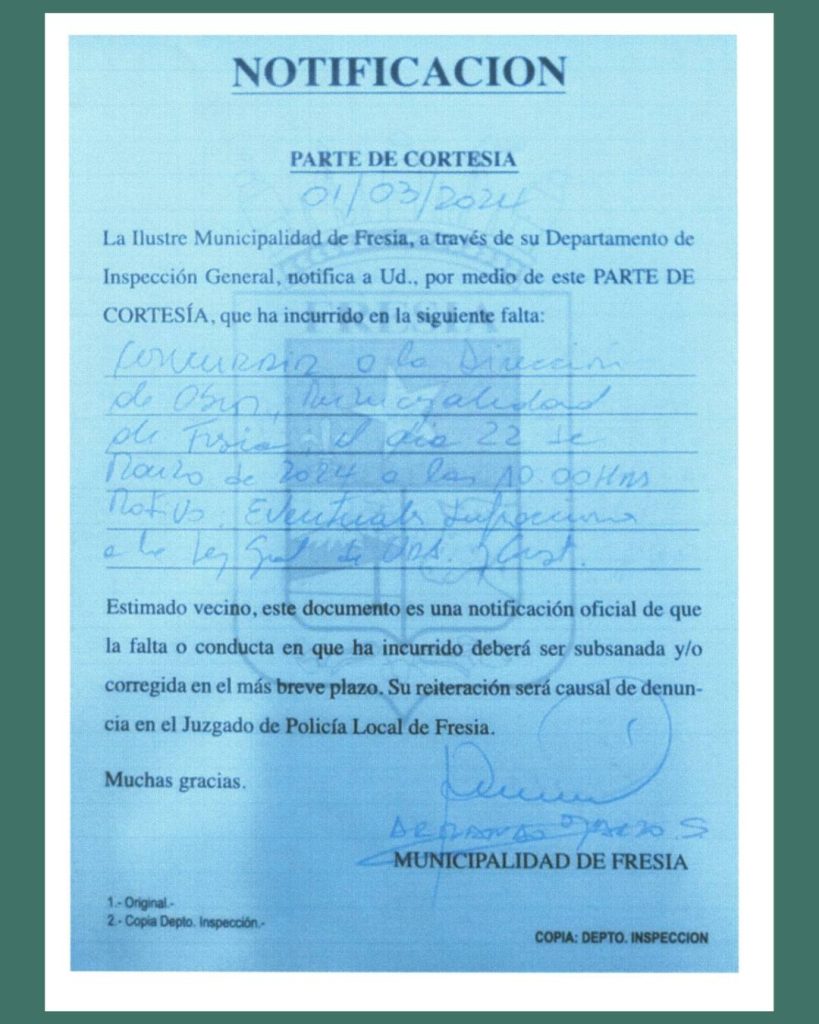 NOTIFICACION
PARTE DE CORTESIA
01/03/2024
La Ilustre Municipalidad de Fresia, a través de su Departamento de
Inspección General, notifica a Ud., por medio de este PARTE DE
CORTESÍA, que ha incurrido en la siguiente falta:
FRESIA
a la Dirección
de Obras, Municipalidad
de Fresia, el día 22 de
Marzo de 2024 a las 10:00 Hrs
Motivo: Eventuales
a la Ley Gral de Urb. y Const.
Estimado vecino, este documento es una notificación oficial de que
la falta o conducta en que ha incurrido deberá ser subsanada y/o
corregida en el más breve plazo. Su reiteración será causal de denun-
cia en el Juzgado de Policía Local de Fresia.
Muchas gracias.
MUNICIPALIDAD DE FRESIA
1.- Original.-
2.- Copia Depto. Inspección.-
COPIA: DEPTO. INSPECCION